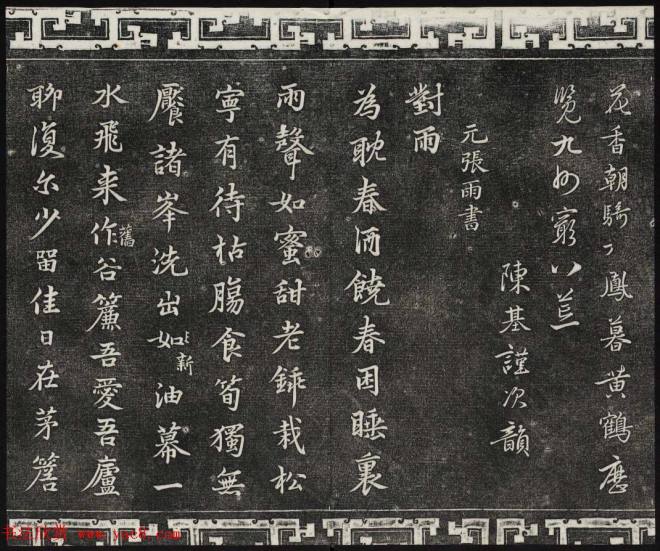 花香朝騎丁鳳暮黃鶴歷
覽九州窮八荒
陳基謹次韻
元張雨書
對雨
為耽春酒饒春困睡裏
雨聲如蜜甜老銶栽松
寧有待枯腸食筍獨無
饜諸峯洗出如新油幕一
水飛来作舊谷簾吾愛吾廬
聊復尔少留佳日在茅簷
书法欣赏 www.yac8.com